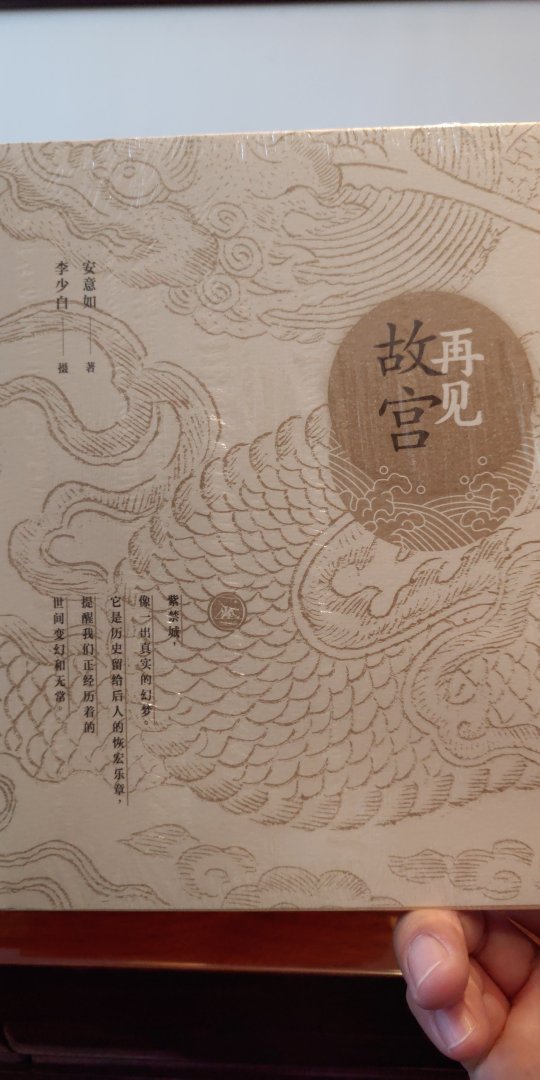 再见
故宫
紫禁城，
像一出真实的幻梦。
它是历史留给后人的恢宏乐章，
提醒我们正经历着的
世间变幻和无常。
安意如——著
李少白——摄